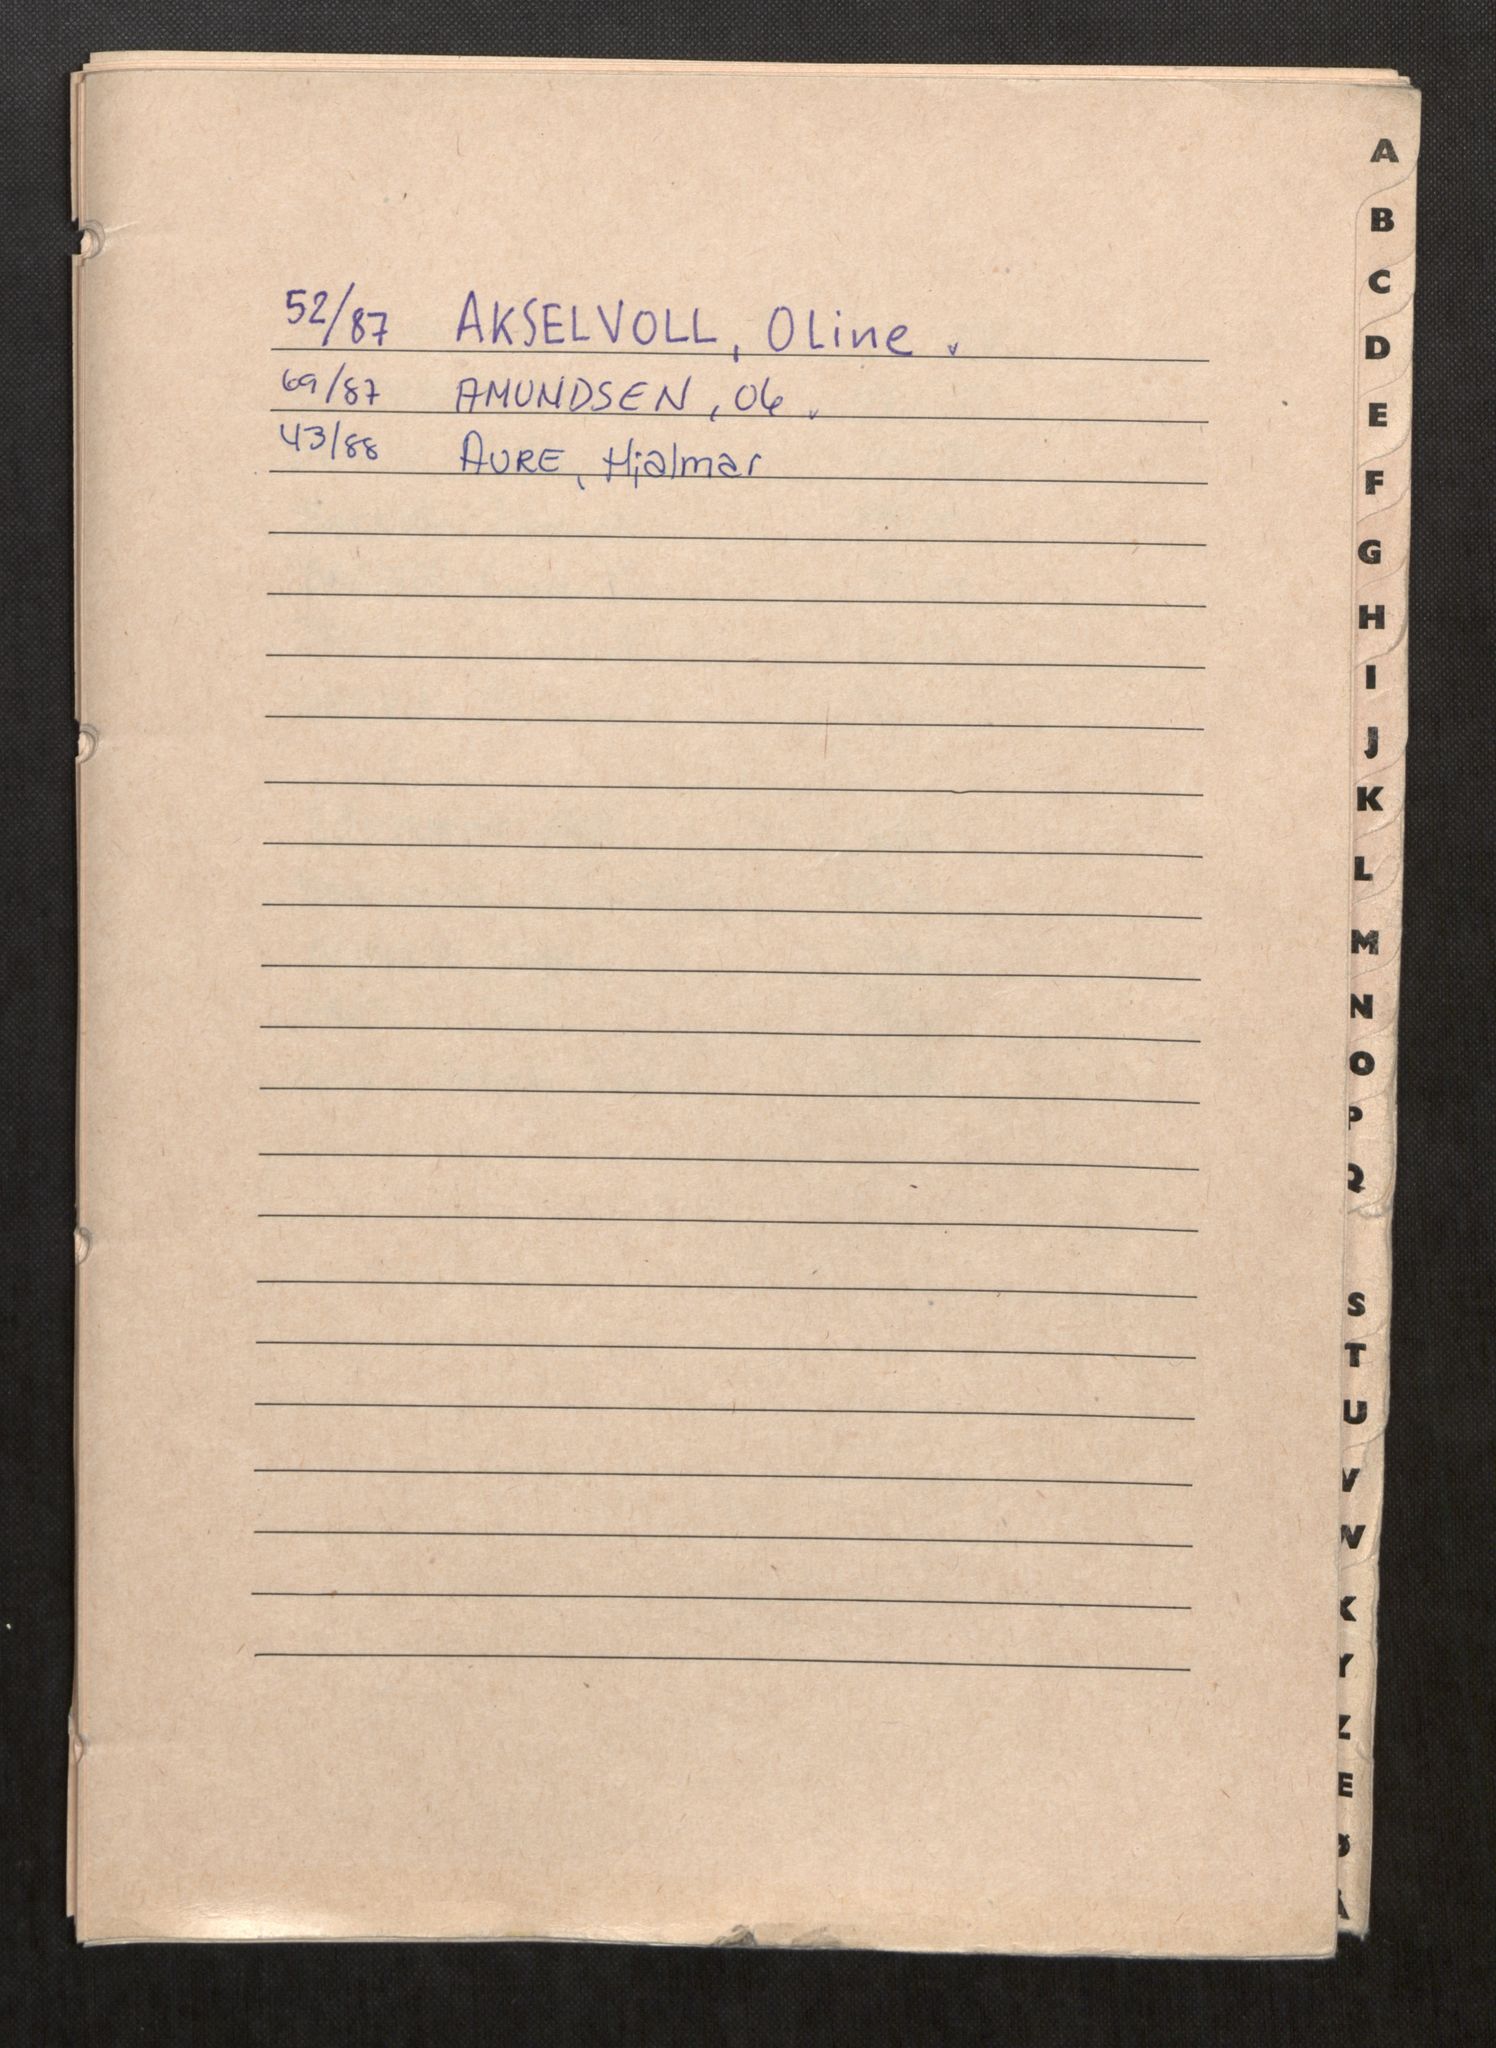 52/87 AKSELVOLL, Oline.
69/87 AMUNDSEN,
43/88 AURE, Hjalmar
A
B
C
D
E
F
G
H
I
J
K
L
M
N
O
P
Q
S
T
U
V
W
X
Y
Z
Æ
Ø
Å